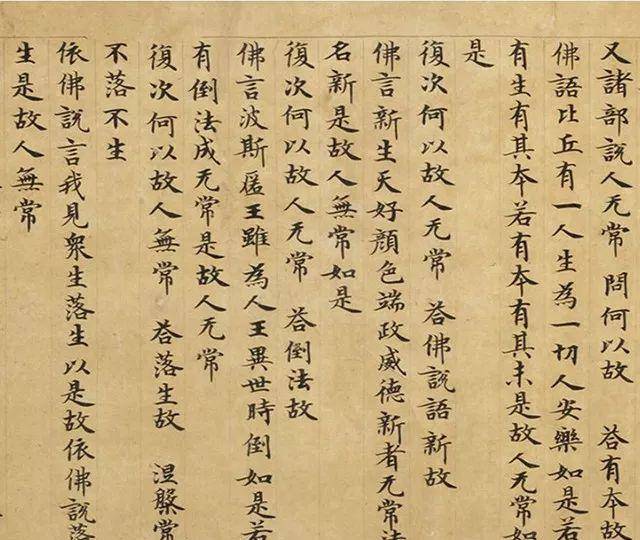 又諸部説人无常 問何以故 荅有本故
佛語比丘有一人生為一切人安樂如是若
有生有其本若有本有其末是故人无常如
是
復次何以故人无常 荅佛説語新故
佛言新生天好顔色端政威德新者无常法
名新是故人無常如是
復次何以故人无常 荅倒法故
佛言波斯匿王雖為人王異世時倒如是若
有倒法成无常是故人无常
復次何以故人無常 荅落生故 涅槃常
不落不生
依佛説言我見衆生落生以是故依佛説落
生是故人無常